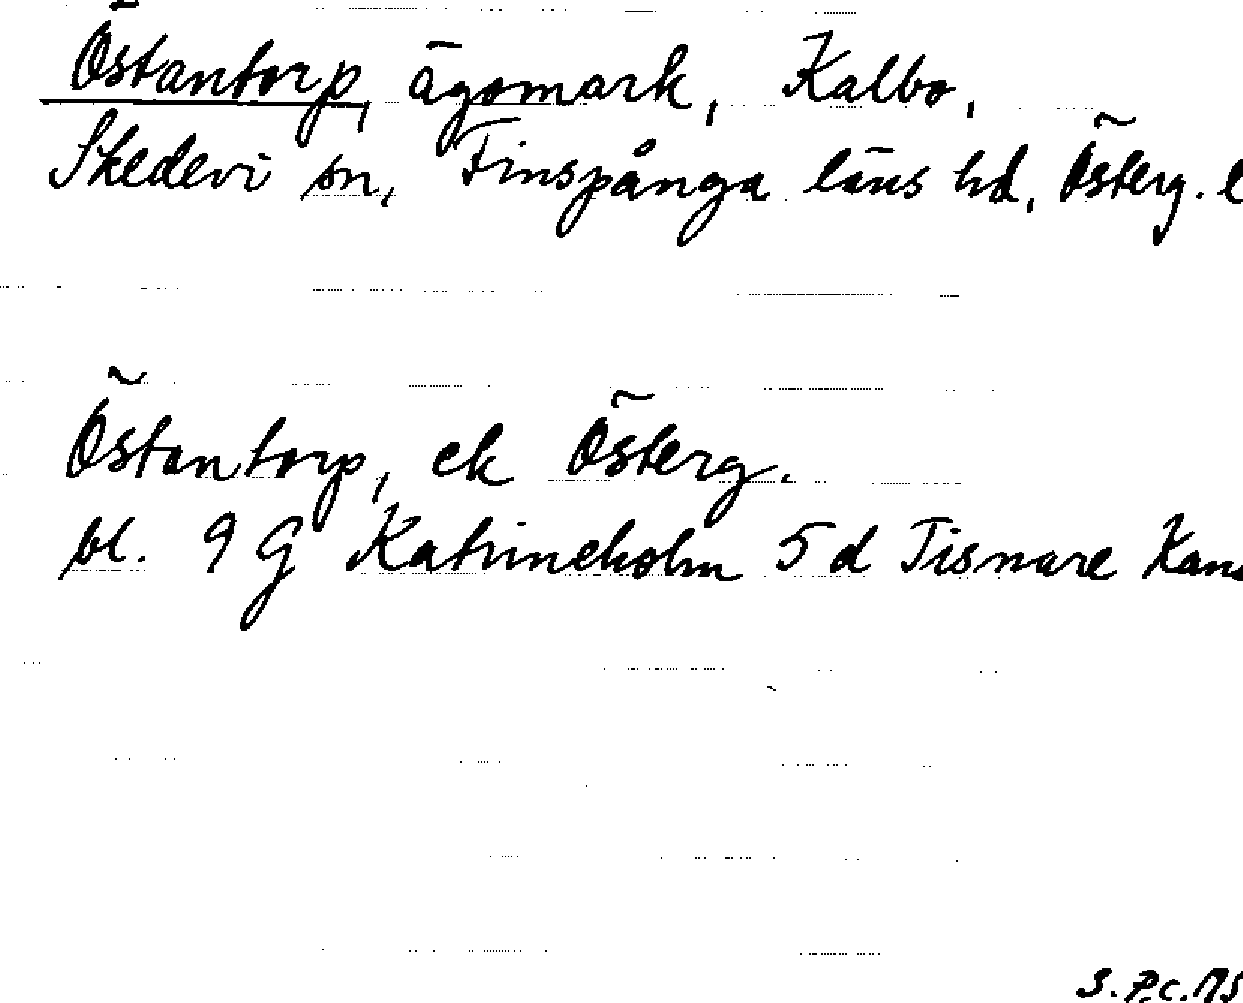 Östantorp, ägomark, Kalbo,
Skedevi sn, Finspånga läns hd, Österg. l
Östantorp, ek Österg.
bl. 9 G Katrineholm 5 d Tisnare Kana